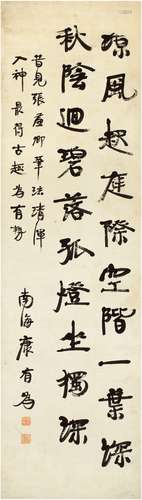 凉風起庭際空階一葉深
秋陰迴碧落孤燈坐獨深
昔見張孟卿筆法清渾
入神最得古趣為有勢
南海康有為